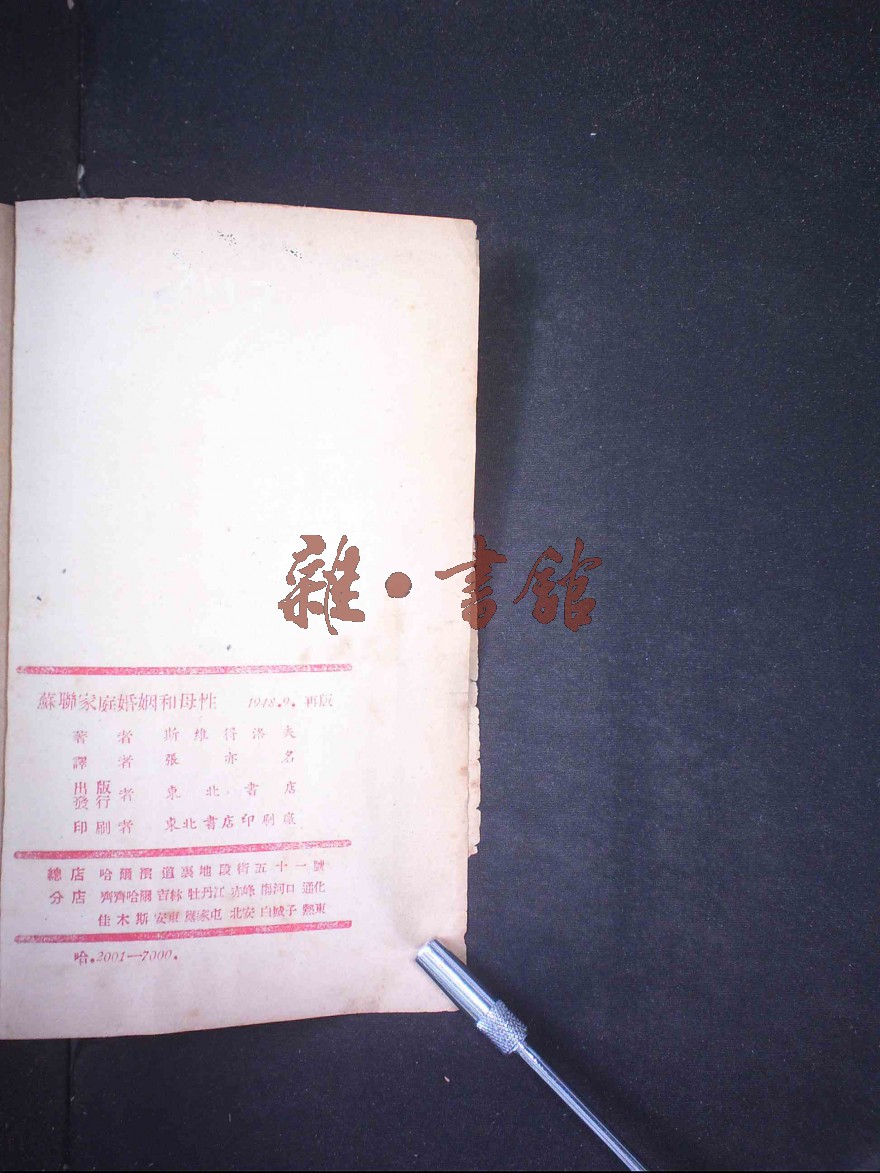 蘇聯家庭婚姻和母性 1948.9. 再版
著者 斯維得洛夫
譯者 張亦名
出版發行者 東北書店
印刷者 東北書店印刷廠
總店 哈爾濱道裏地段街五十一號
分店 齊齊哈爾 吉林 牡丹江 赤峰 圖河口 通化
佳木斯 安東 羅家屯 北安 白城子 熱東
哈.2001—7000.
雜•書館